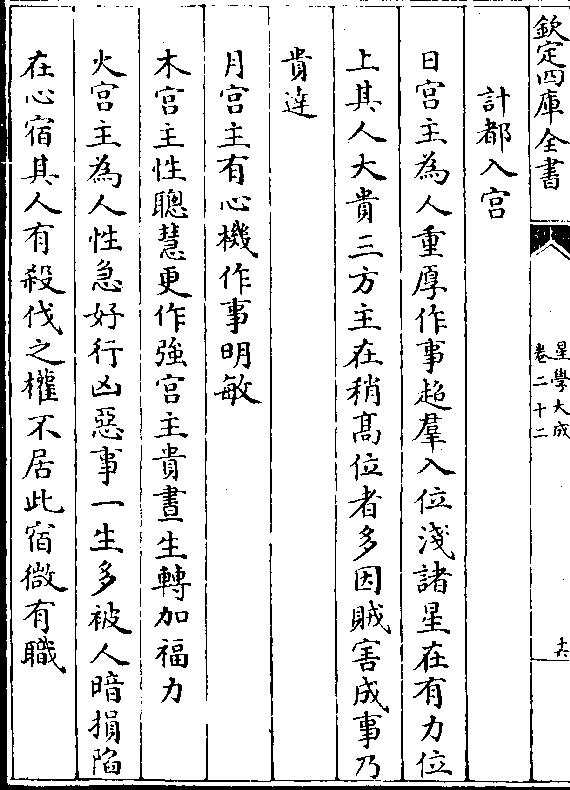 欽定四庫全書
星學大成
卷二十二
十六
計都入宫
日宫主為人重厚作事超羣入位淺諸星在有力位
上其人大貴三方主在稍髙位者多因賊害成事乃
貴達
月宫主有心機作事明敏
木宫主性聰慧更作強宫主貴晝生轉加福力
火宫主為人性急好行凶惡事一生多被人暗損陷
在心宿其人有殺伐之權不居此宿微有職